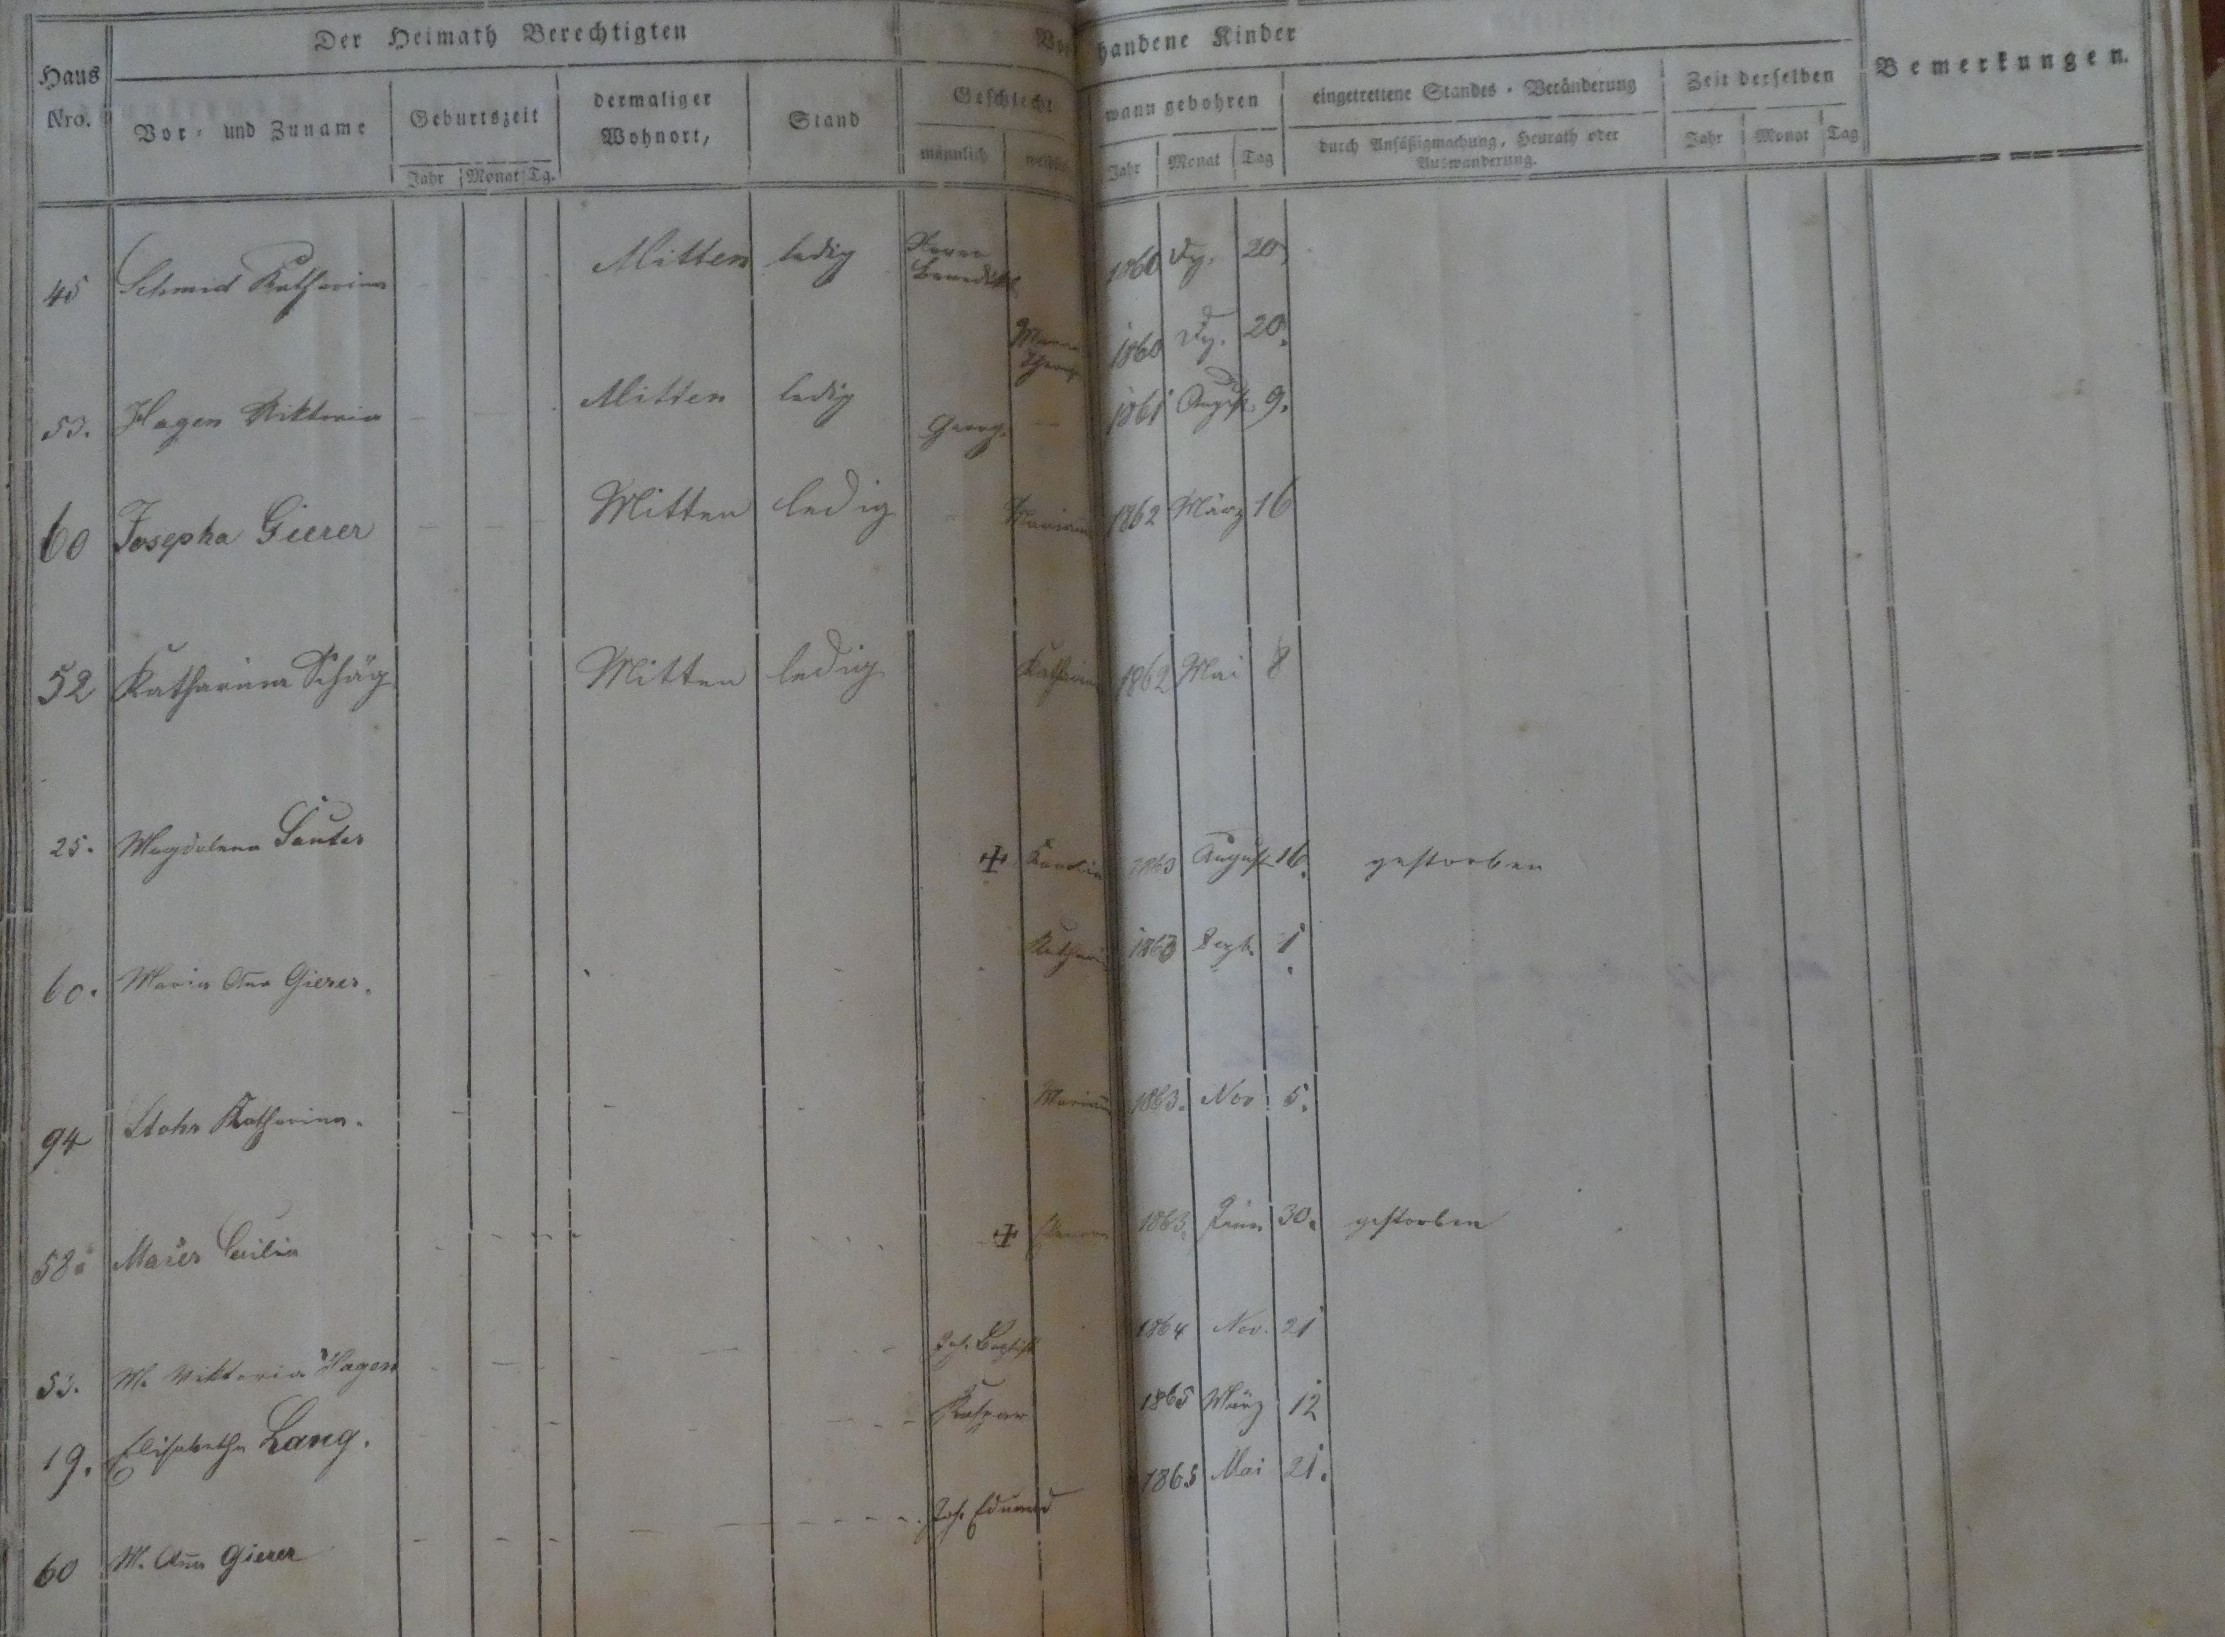 Der Heimath Berechtigten
Vorhandene Kinder
Bemerkungen.
Haus Nro.
Vor- und Zuname
Geburtszeit
dermaliger Wohnort,
Stand
Geschlecht
wann gebohren
eingetrettene Standes-Veränderung
durch Ansäßigmachung, Heurath oder
Auswanderung.
Zeit derselben
Jahr Monat Tg.
männlich
Jahr Monat Tag
Jahr Monat Tag
45 Schmid Katharina Mitten ledig Benedikt 1860 20.
1860 20.
53. Hagen Viktoria Mitten ledig Georg. 1861 August 9.
60 Josepha Gierer Mitten ledig 1862 März 16
52 Katharina Schäg Mitten ledig Katharina 1862 Mai 8
25. Magdalena Sauter ✠ Karolin 1863 August 16. gestorben
60. Maria Ana Gierer. Kathari 1863 Sept. 1.
94 Stohr Katharina. 1863. Nov. 5.
58. Maier Cäcilia ✠ 1863. 30. gestorben
53. M. Viktoria Hagen Joh. Baptist 1864 Nov. 21
19. Elisabetha Lang. Kaspar 1865 März 12
60 M. Ana Gierer Joh. Eduard 1865 Mai 21.